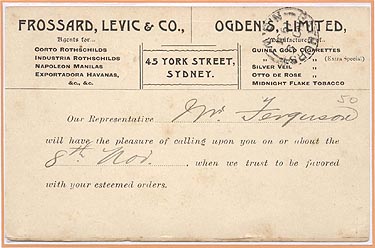 FROSSARD, LEVIC & CO.,
Agents for
CORTO ROTHSCHILDS
INDUSTRIA ROTHSCHILDS
NAPOLEON MANILAS
EXPORTADORA HAVANAS,
&c., &c.
45 YORK STREET,
SYDNEY.
OGDEN'S, LIMITED,
Manufacturers of
GUINEA GOLD CIGARETTES
" " (Extra Special)
SILVER VEIL "
OTTO DE ROSE "
MIDNIGHT FLAKE TOBACCO
50
Our Representative Mr. Ferguson
will have the pleasure of calling upon you on or about the
8th Nov. , when we trust to be favored
with your esteemed orders.